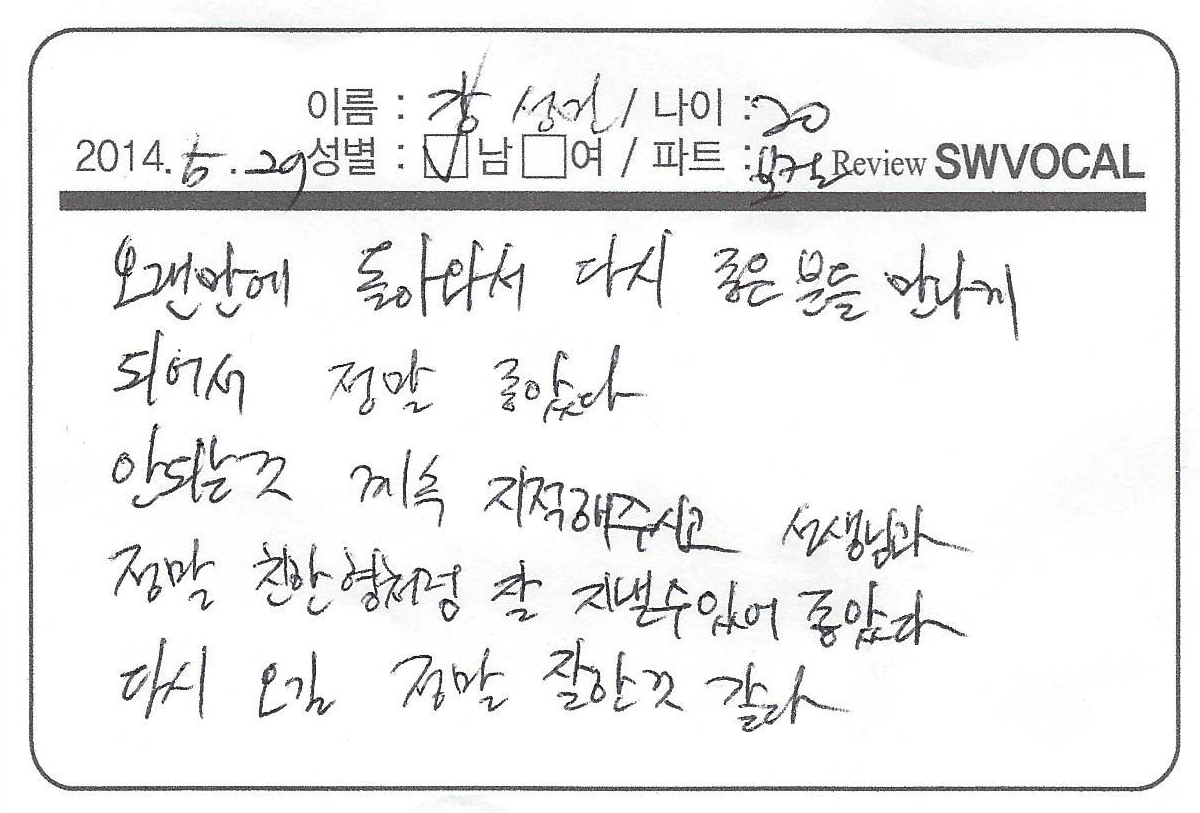 이름 : 강성민 / 나이 : 20
2014. 5. 29 성별 : 남 여 / 파트 : 보컬 Review SWVOCAL
오랜만에 돌아와서 다시 좋은 분들 만나게
되어서 정말 좋았다
안되는것 계속 지적해주시고 선생님과
정말 친한형처럼 잘 지낼수있어 좋았다
다시 오길 정말 잘한것 같다